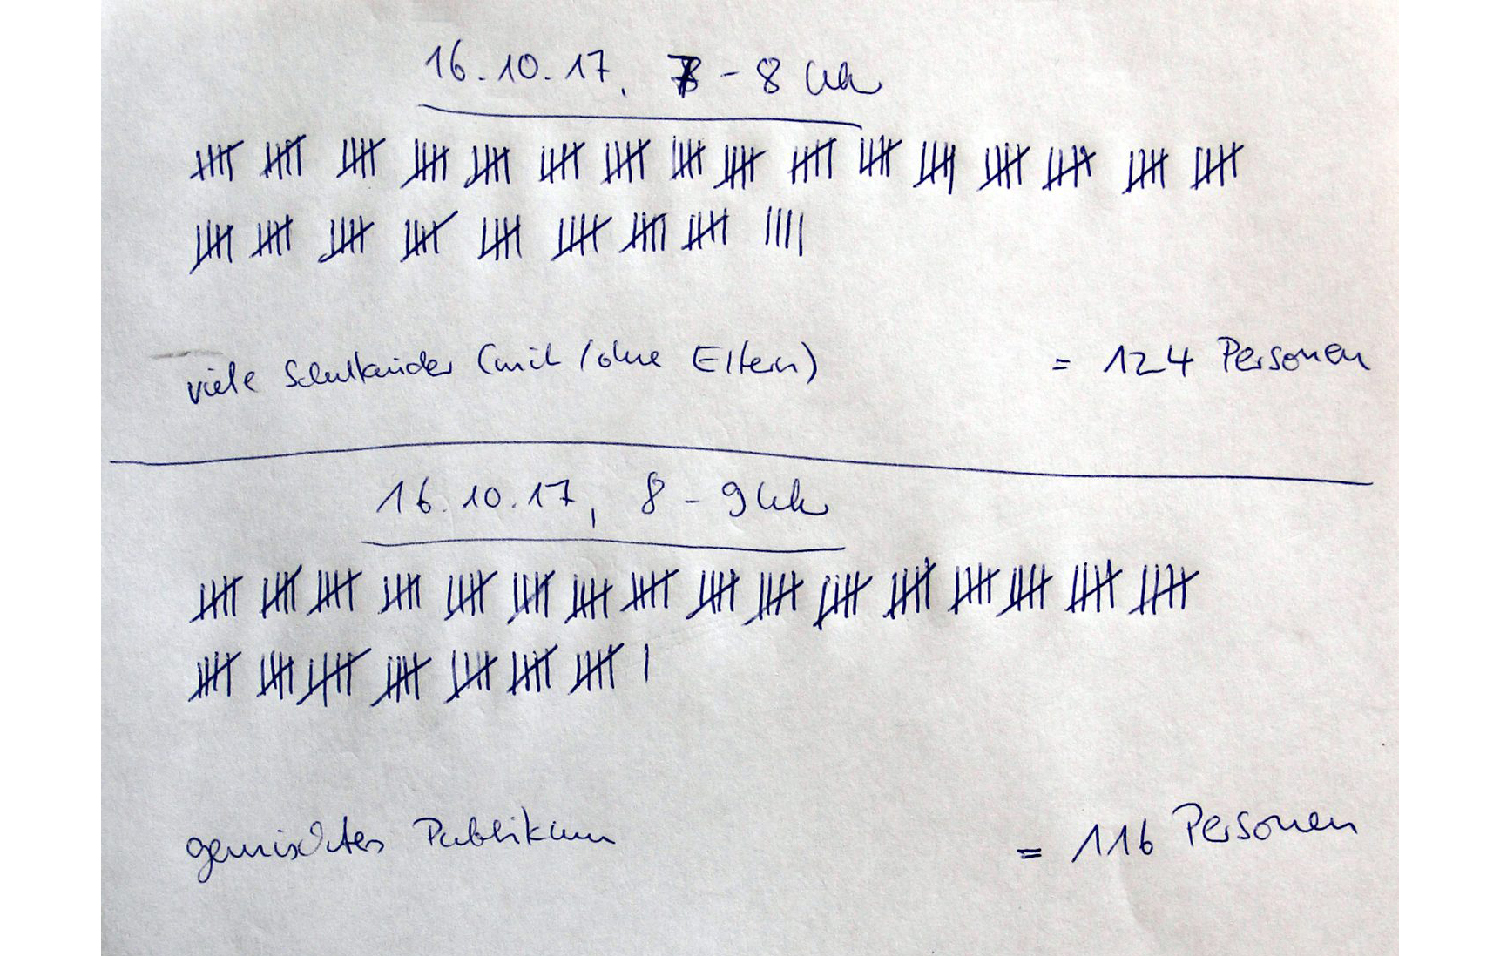 16.10.17, 7 - 8 Uhr
viele Schulkinder (mit / ohne Eltern) = 124 Personen
16.10.17, 8 - 9 Uhr
gemischtes Publikum = 116 Personen